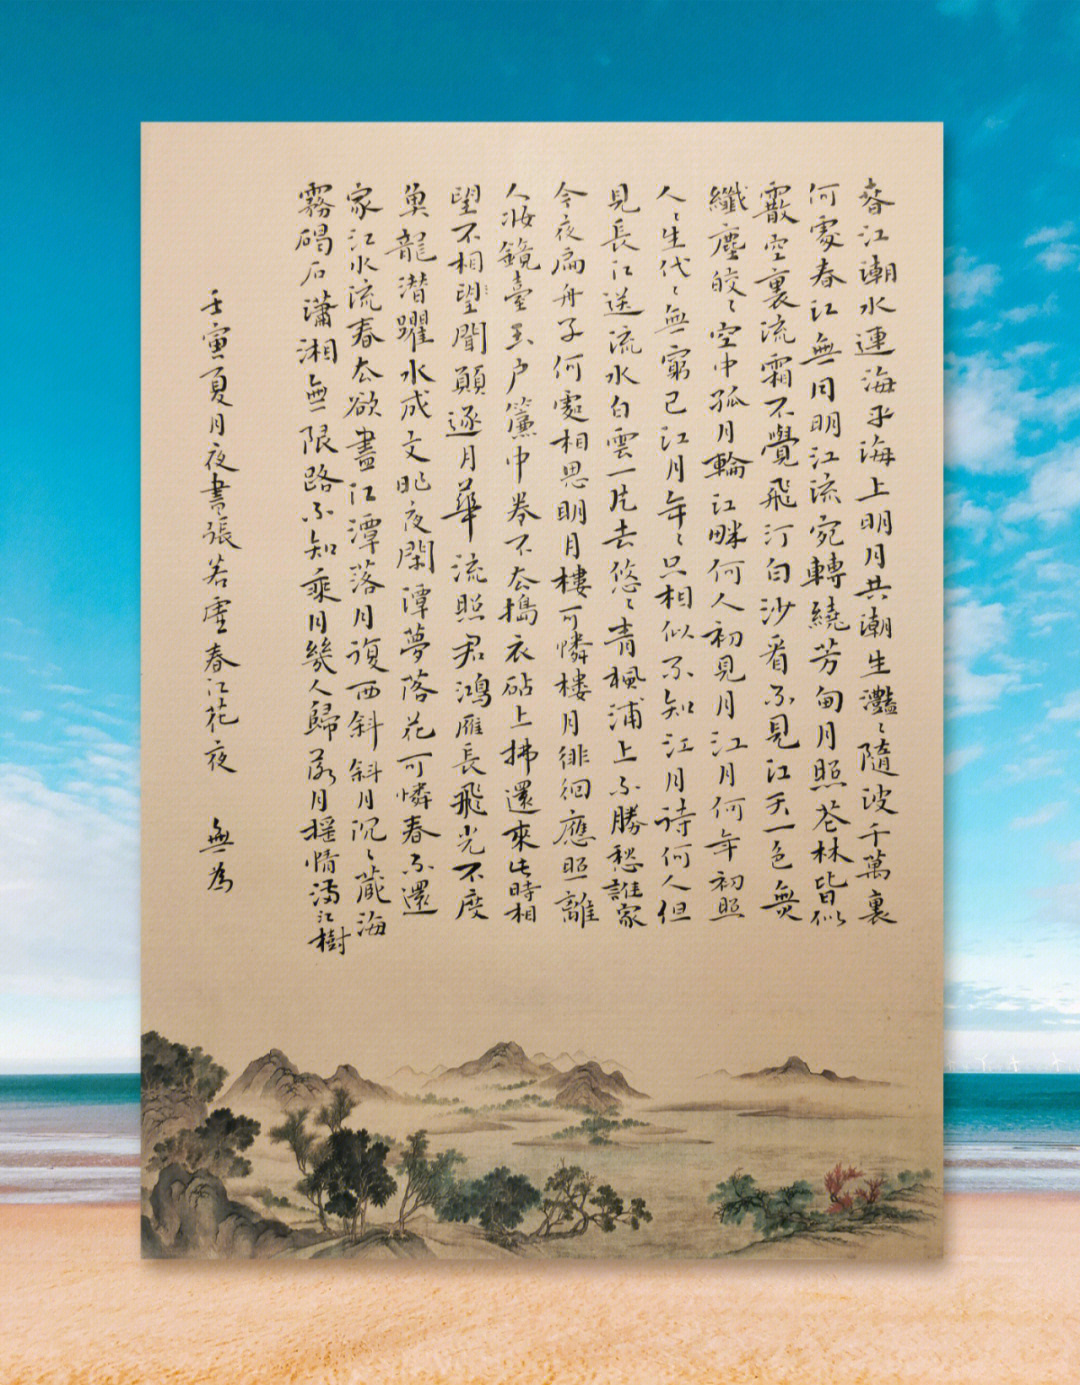 春江潮水連海平海上明月共潮生灩〻隨波千萬裏
何處春江無月明江流宛轉繞芳甸月照花林皆似
霰空裏流霜不覺飛汀白沙看不見江天一色無
纖塵皎〻空中孤月輪江畔何人初見月江月何年初照
人〻生代〻無窮已江月年〻只相似不知江月待何人但
見長江送流水白雲一片去悠〻青楓浦上不勝愁誰家
今夜扁舟子何處相思明月樓可憐樓月徘徊應照離
人妝鏡臺玉户簾中卷不去搗衣砧上拂還來此時相
望不相望聞願逐月華流照君鴻雁長飛光不度
魚龍潜躍水成文昨夜閑潭夢落花可憐春不還
家江水流春去欲盡江潭落月復西斜斜月沉〻藏海
霧碣石瀟湘無限路不知乘月幾人歸落月摇情滿江樹
壬寅夏月夜書張若虚春江花夜 無為